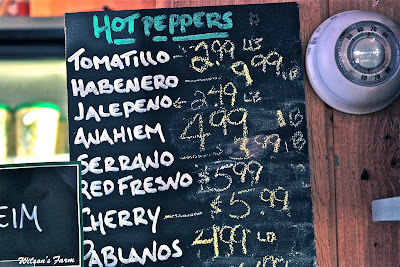 HOT PEPPERS
TOMATILLO 2.99 LB
HABENERO 9.99 LB
JALEPEÑO 2.49 LB
ANAHIEM 4.99 LB
SERRANO 3.99 LB
RED FRESNO $5.99
CHERRY $5.99
PABLANOS 4.99 LB
EIM
Wilson's Farm